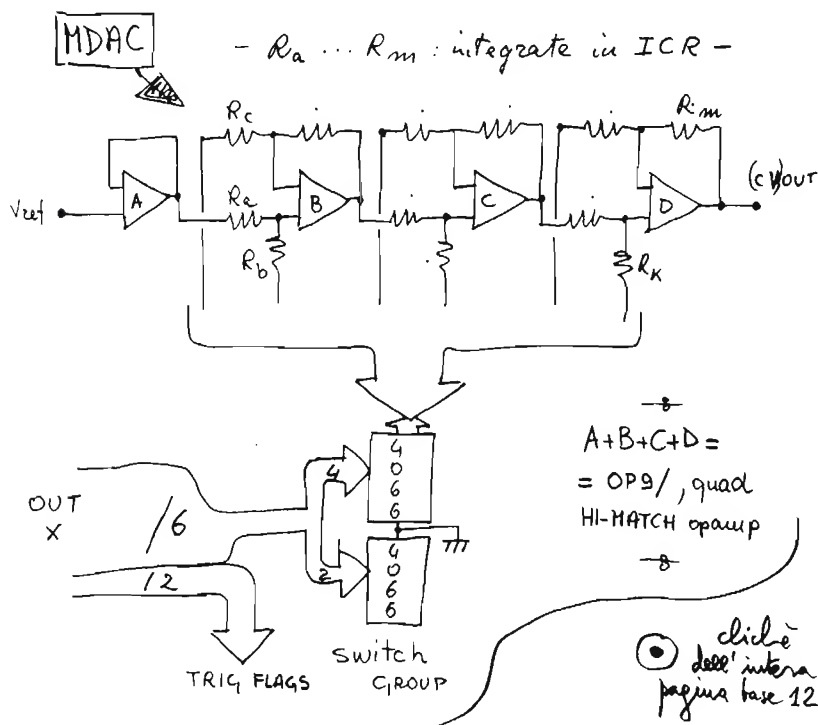 MDAC
- Ra ... Rm : integrate in ICR -
Rc
Rm
Vref
A
Ra
B
C
D
(CV)OUT
Rb
RK
4066
4
4066
2
OUT
X
/6
/2
TRIG FLAGS
switch
GROUP
A+B+C+D =
= OP9/, quad
HI-MATCH opamp
clichè
dell'intera
pagina base 12